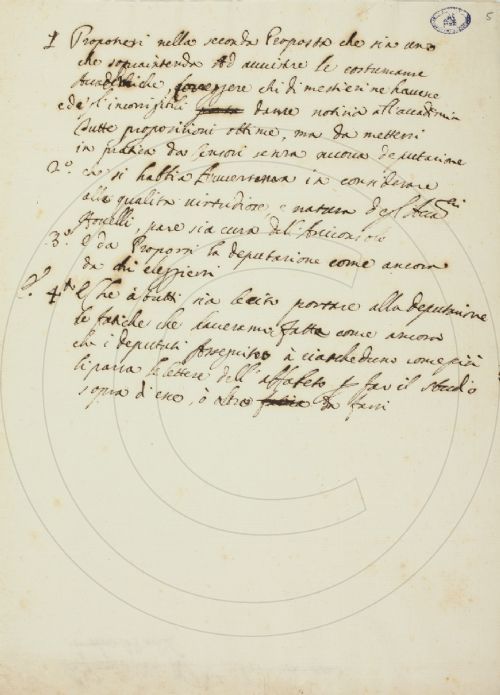 5
1 Proponesi nella seconda Proposta che sia uno
che sopraintenda ad avvitare le costumanze
chi di mestierine havesse
ed egl'incorrigibili darne notizia all'accademia
Tutte propositioni ottime, ma da mettersi
in pratica da Censori senza nuova deputazione
2º che si habbia l'avvertenza in considerare
alla qualità virtudiose e natura degl'Accad.ci
Novelli, pare sia cura dell'Arciconsolo
3º è da Proporsi la deputazione come ancora
da chi eleggersi
4º Che à tutti sia lecito portare alla deputazione
le fatiche che haveranno fatte come ancora
che i deputati à ciascheduno come più
li parrà le lettere dell'alfabeto p far il studio
sopra d'esse, ò altro da farsi